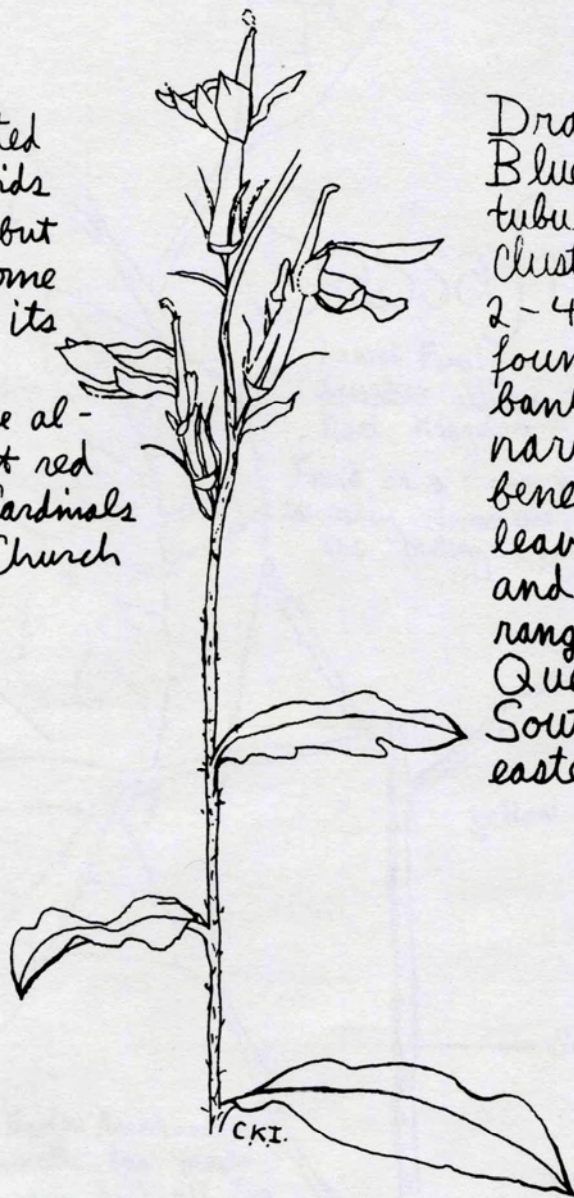 ted
ids
but
ome
its
e al-
t red
Cardinals
Church
Dra
Blue
tubu
Clust
2-4
foun
ban
nar
bene
leav
and
rang
Que
Sout
easte
C.K.I.